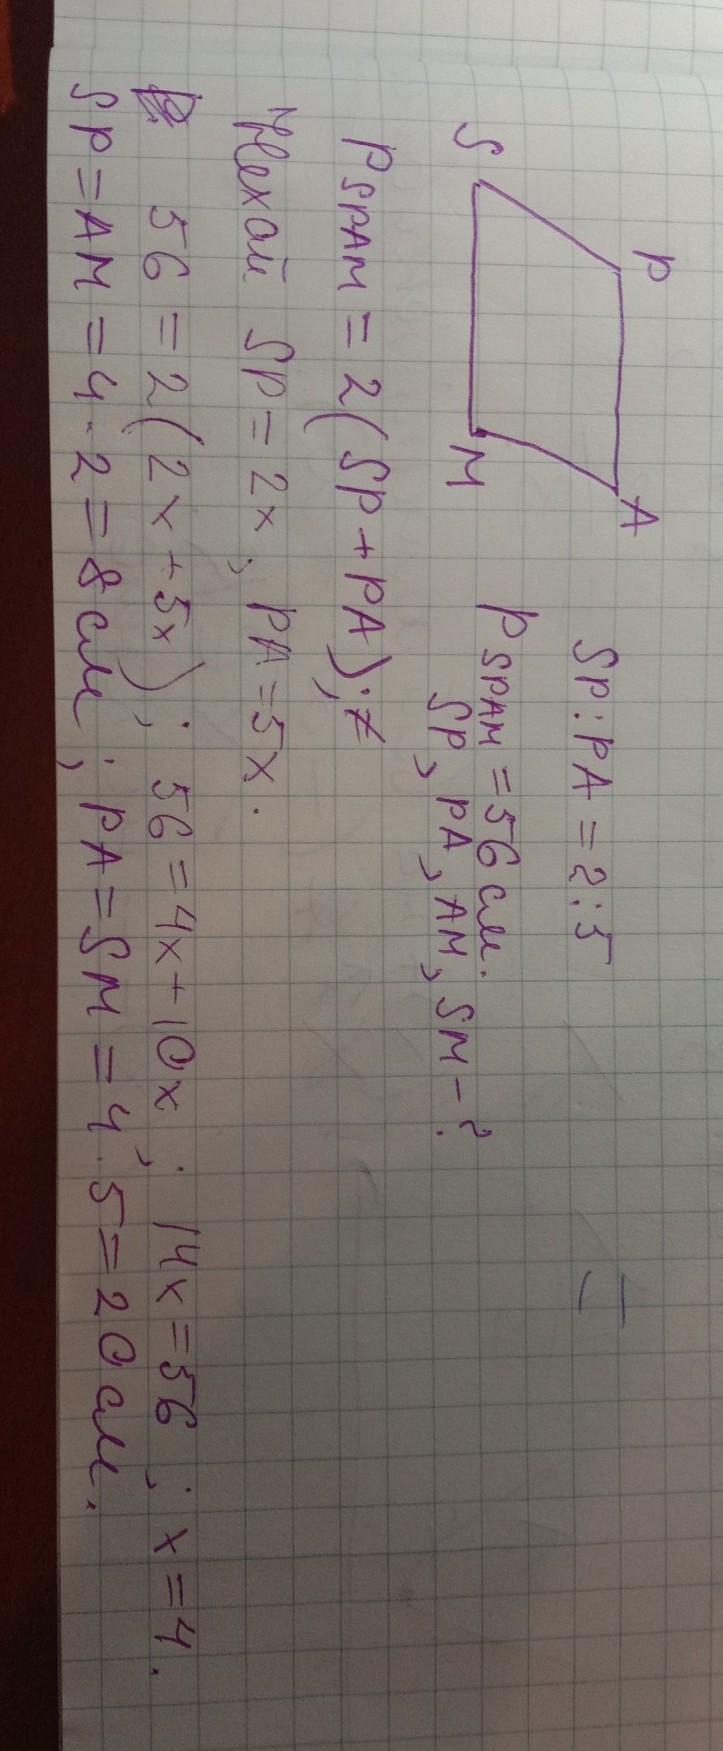 P A
S M
SP : PA = 2 : 5
P SPAM = 56 см.
SP, PA, AM, SM - ?
P SPAM = 2(SP + PA);
Нехай SP = 2x, PA = 5x.
56 = 2(2x + 5x); 56 = 4x + 10x; 14x = 56; x = 4.
SP = AM = 4 · 2 = 8 см; PA = SM = 4 · 5 = 20 см.